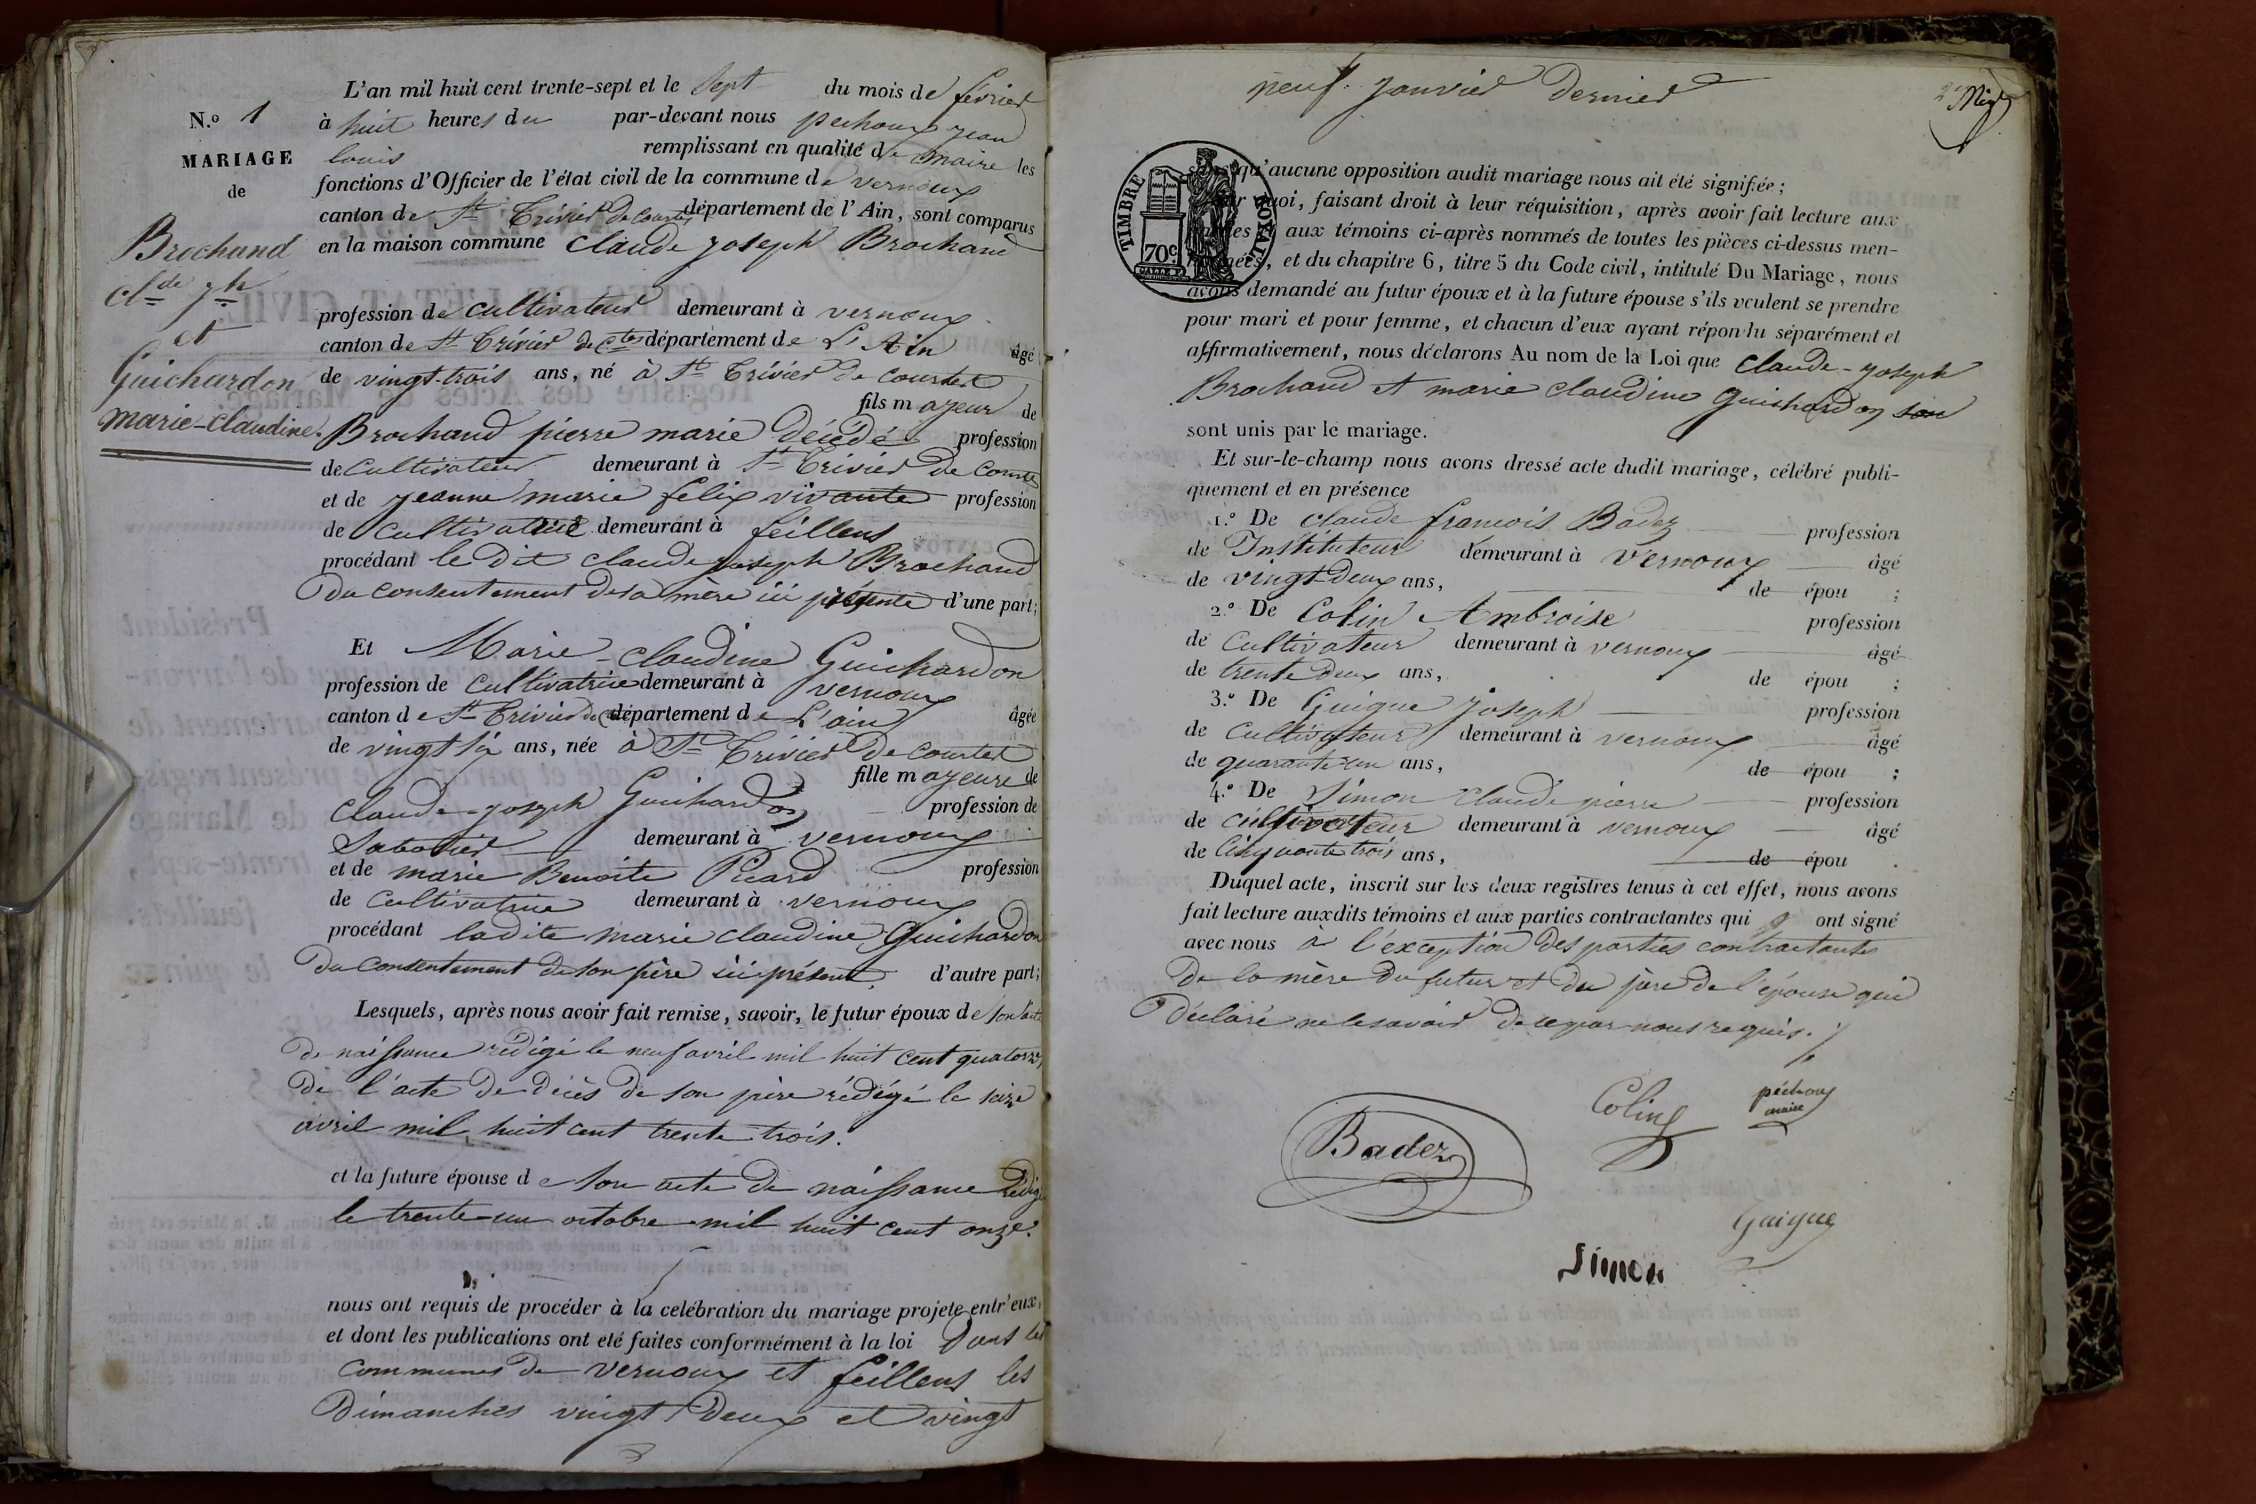 N.o 1
MARIAGE
de
Brochand
Cl.de J.ph
et
Guichardon
marie-claudine.
L'an mil huit cent trente-sept et le sept du mois de février
à huit heures du par-devant nous pechoux jean
louis remplissant en qualité de maire les
fonctions d'Officier de l'état civil de la commune de vernoux
canton de St Trivier de Courtes département de l'Ain, sont comparus
en la maison commune Claude joseph Brochand
profession de cultivateur demeurant à vernoux
canton de St Trivier de Ctes département de L'Ain âgé
de vingt-trois ans, né à St Trivier de courtes
fils mayeur de
Brochand pierre marie décédé profession
de Cultivateur demeurant à St Trivier de Courtes
et de jeanne marie felix vivante profession
de cultivatrice demeurant à feillens
procédant le dit claude joseph Brochand
du consentement de sa mère ici présente d'une part;
Et Marie-claudine Guichardon
profession de cultivatrice demeurant à vernoux
canton de St Trivier de Ctes département de L'ain âgée
de vingt six ans, née à St Trivier de courtes
fille mayeure de
claude-joseph Guichardon profession de
Sabotier demeurant à vernoux
et de marie Benoite Picard profession
de Cultivatrice demeurant à vernoux
procédant ladite marie claudine Guichardon
du consentement de son père ici présent d'autre part;
Lesquels, après nous avoir fait remise, savoir, le futur époux de son acte
de naissance rédigé le neuf avril mil huit cent quatorze,
de l'acte de décès de son père rédigé le seize
avril mil huit cent trente trois.
et la future épouse de son acte de naissance rédigé
le trente-un octobre mil huit cent onze.
nous ont requis de procéder à la celébration du mariage projeté entr'eux,
et dont les publications ont eté faites conformément à la loi Dans les
communes de vernoux et feillens les
Dimanches vingt deux et vingt
neuf janvier dernier
TIMBRE ROYAL
70c.
qu'aucune opposition audit mariage nous ait été signifiée;
quoi, faisant droit à leur réquisition, après avoir fait lecture aux
aux témoins ci-après nommés de toutes les pièces ci-dessus men-
, et du chapitre 6, titre 5 du Code civil, intitulé Du Mariage, nous
avons demandé au futur époux et à la future épouse s'ils veulent se prendre
pour mari et pour femme, et chacun d'eux ayant répondu séparément et
affirmativement, nous déclarons Au nom de la Loi que claude-joseph
Brochand et marie claudine Guichardon
sont unis par le mariage.
Et sur-le-champ nous avons dressé acte dudit mariage, célébré publi-
quement et en présence
1.o De claude francois Badez profession
de Instituteur demeurant à Vernoux âgé
de vingt-deux ans, de épou ;
2.o De Colin Ambroise profession
de Cultivateur demeurant à vernoux âgé
de trente deux ans, de épou ;
3.o De Guigue joseph profession
de Cultivateur demeurant à vernoux âgé
de quarante-un ans, de épou ;
4.o De Simon claude pierre profession
de cultivateur demeurant à vernoux âgé
de Cinquante trois ans, de épou .
Duquel acte, inscrit sur les deux registres tenus à cet effet, nous avons
fait lecture auxdits témoins et aux parties contractantes qui ont signé
avec nous à l'exception des parties contractantes
de la mère du futur et du père de l'épouse qui
déclaré ne le savoir de ce par nous requis.
Colin
péchoux
maire
Badez
Guigue
Simon